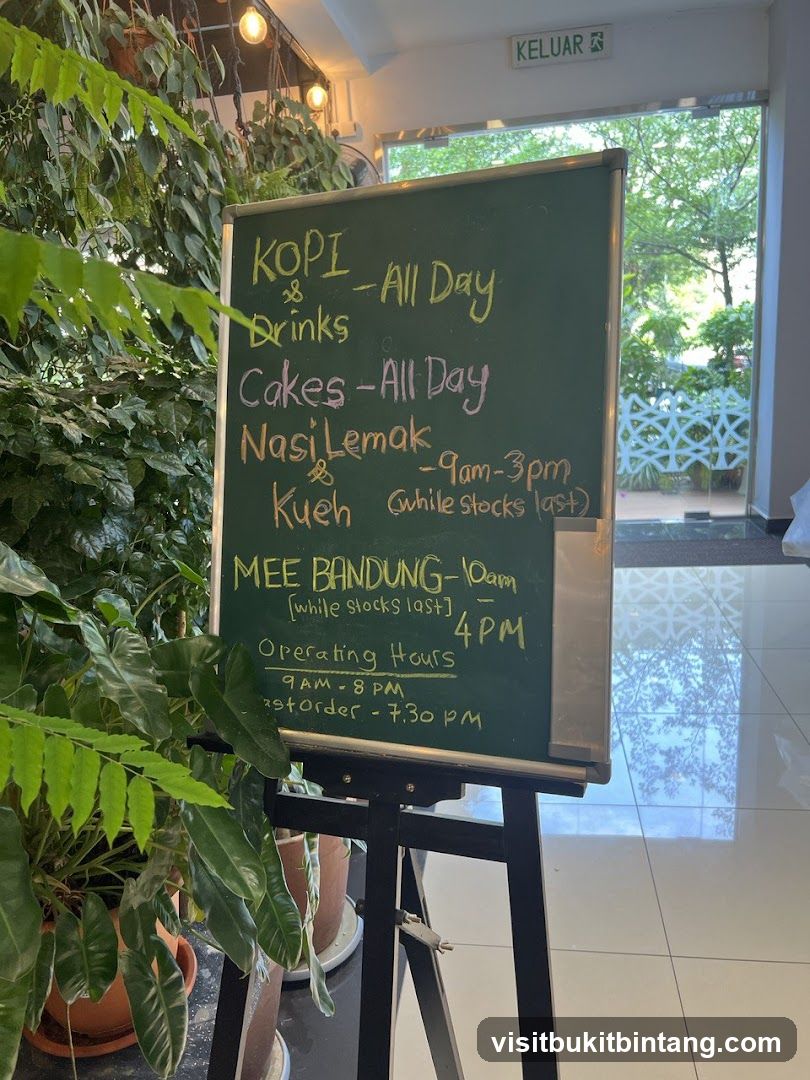 KELUAR
KOPI
&
Drinks
- All Day
Cakes - All Day
Nasi Lemak
&
Kueh
- 9am - 3pm
(while stocks last)
MEE BANDUNG - 10am
-
[while stocks last]
4PM
Operating Hours
9AM - 8PM
ast Order - 7.30 PM
visitbukitbintang.com